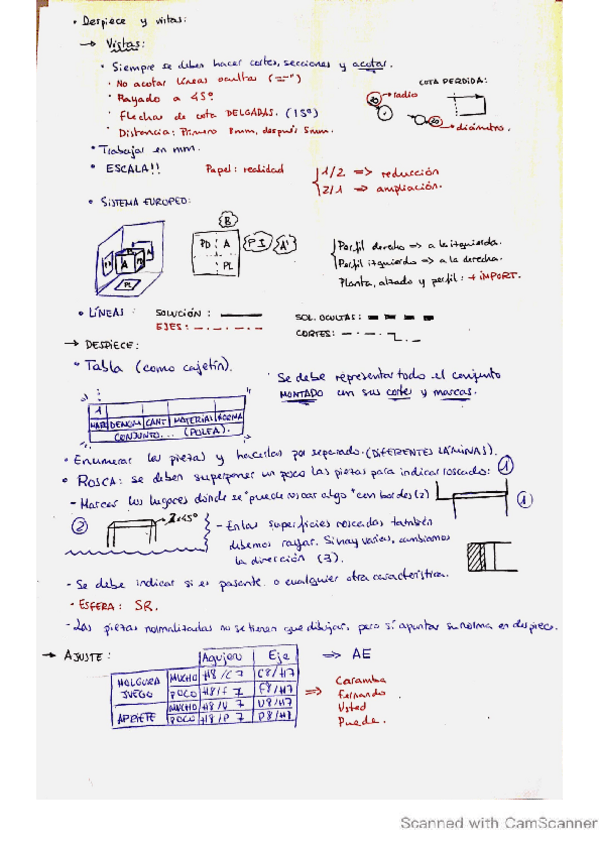 • Despiece y vistas:
→ Vistas:
• Siempre se deben hacer cortes, secciones y acotar.
• No acotar líneas ocultas (=="")
• Rayado a 45º
• Flechas de cota DELGADAS. (15º)
• Distancia: Primero 8mm, después 5mm.
COTA PERDIDA:
radio
diámetro.
• Trabajar en mm.
• ESCALA!! Papel: realidad
1/2 => reducción
2/1 => ampliación.
• SISTEMA EUROPEO:
B
PD A PI A'
PL
A
PL
Perfil derecho => a la izquierda.
Perfil izquierdo => a la derecha.
Planta, alzado y perfil: + IMPORT.
• LÍNEAS: SOLUCIÓN:
SOL. OCULTAS:
EJES:
CORTES:
→ DESPIECE:
• Tabla (como cajetín).
• Se debe representar todo el conjunto
MONTADO con sus cortes y marcas.
1
MARC DENOM CANT MATERIAL NORMA
CONJUNTO... (POLEA).
• Enumerar las piezas y hacerlas por separado. (DIFERENTES LÁMINAS).
• ROSCA: se deben superponer un poco las piezas para indicar roscado: 1
- Marcar los lugares donde se "puede roscar algo" con bordes (2)
1
2
2x45º
- En las superficies roscadas también
debemos rayar. Si hay varias, cambiamos
la dirección (3).
- Se debe indicar si es pasante o cualquier otra característica.
- ESFERA: SR.
- Las piezas normalizadas no se tienen que dibujar, pero sí apuntar su norma en despiece.
→ AJUSTE:
Agujero Eje => AE
HOLGURA JUEGO MUCHO H8/C7 C8/H7
POCO H8/f7 F8/H7
APRIETE MUCHO H8/U7 U8/H7
POCO H8/P7 P8/H7
=> Caramba
Fernando
Usted
Puede.
Scanned with CamScanner